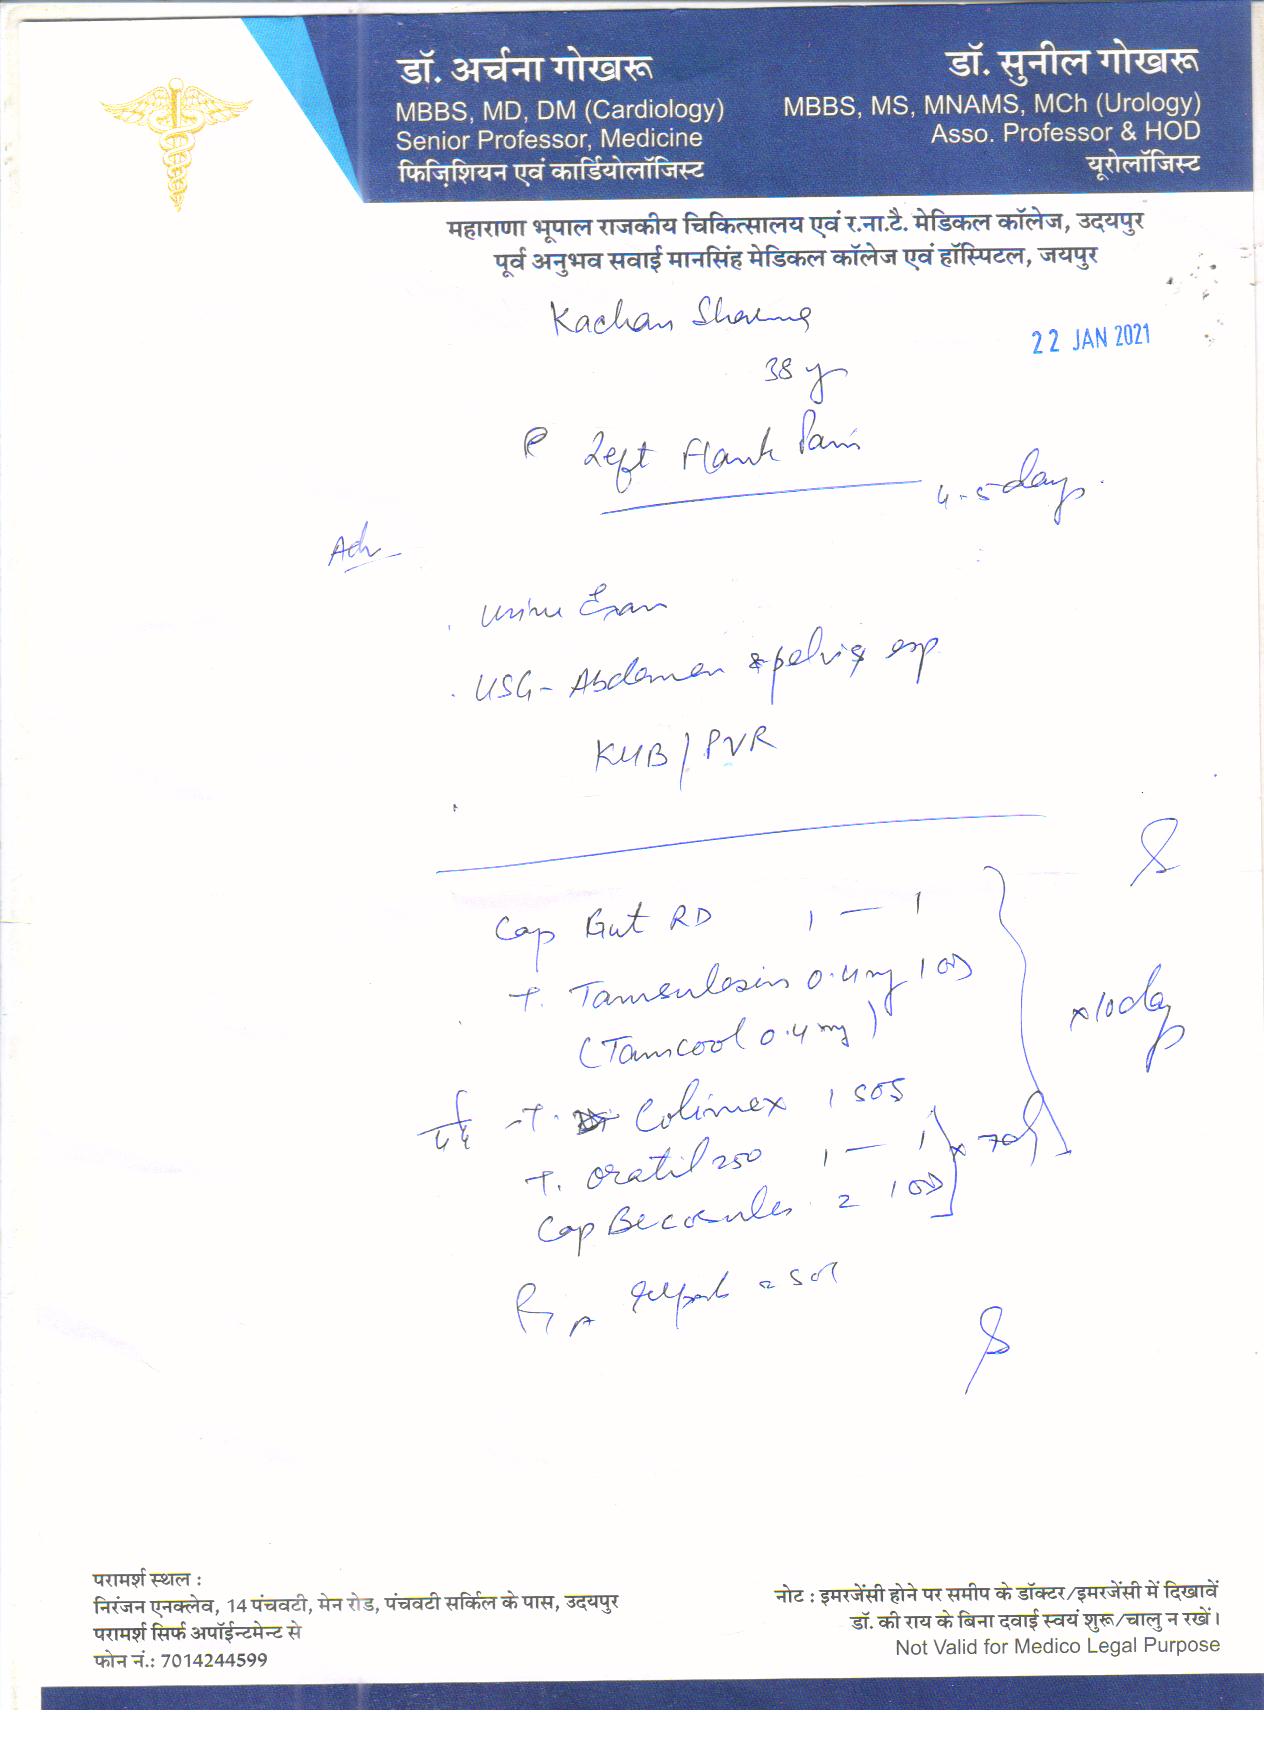 डॉ. अर्चना गोखरू
MBBS, MD, DM (Cardiology)
Senior Professor, Medicine
फिज़िशियन एवं कार्डियोलॉजिस्ट
डॉ. सुनील गोखरू
MBBS, MS, MNAMS, MCh (Urology)
Asso. Professor & HOD
यूरोलॉजिस्ट
महाराणा भूपाल राजकीय चिकित्सालय एवं र.ना.टै. मेडिकल कॉलेज, उदयपुर
पूर्व अनुभव सवाई मानसिंह मेडिकल कॉलेज एवं हॉस्पिटल, जयपुर
Kachan Sharma
22 JAN 2021
38 y
Left Flank Pain
4-5 days.
Adv -
Urine Exam
USG - Abdomen & pelvis esp
KUB / PVR
Cap Gut RD 1 — 1
T. Tamsulosin 0.4 mg 1 OD
(Tamcool 0.4 mg)
x 10 day
T. Colimex 1 SOS
T. Oratil 250 1 — 1 x 7d
Cap Becosules 2 1 OD
SOS
परामर्श स्थल :
निरंजन एनक्लेव, 14 पंचवटी, मेन रोड, पंचवटी सर्किल के पास, उदयपुर
परामर्श सिर्फ अपॉईन्टमेन्ट से
फोन नं.: 7014244599
नोट : इमरजेंसी होने पर समीप के डॉक्टर/इमरजेंसी में दिखावें
डॉ. की राय के बिना दवाई स्वयं शुरू/चालु न रखें।
Not Valid for Medico Legal Purpose